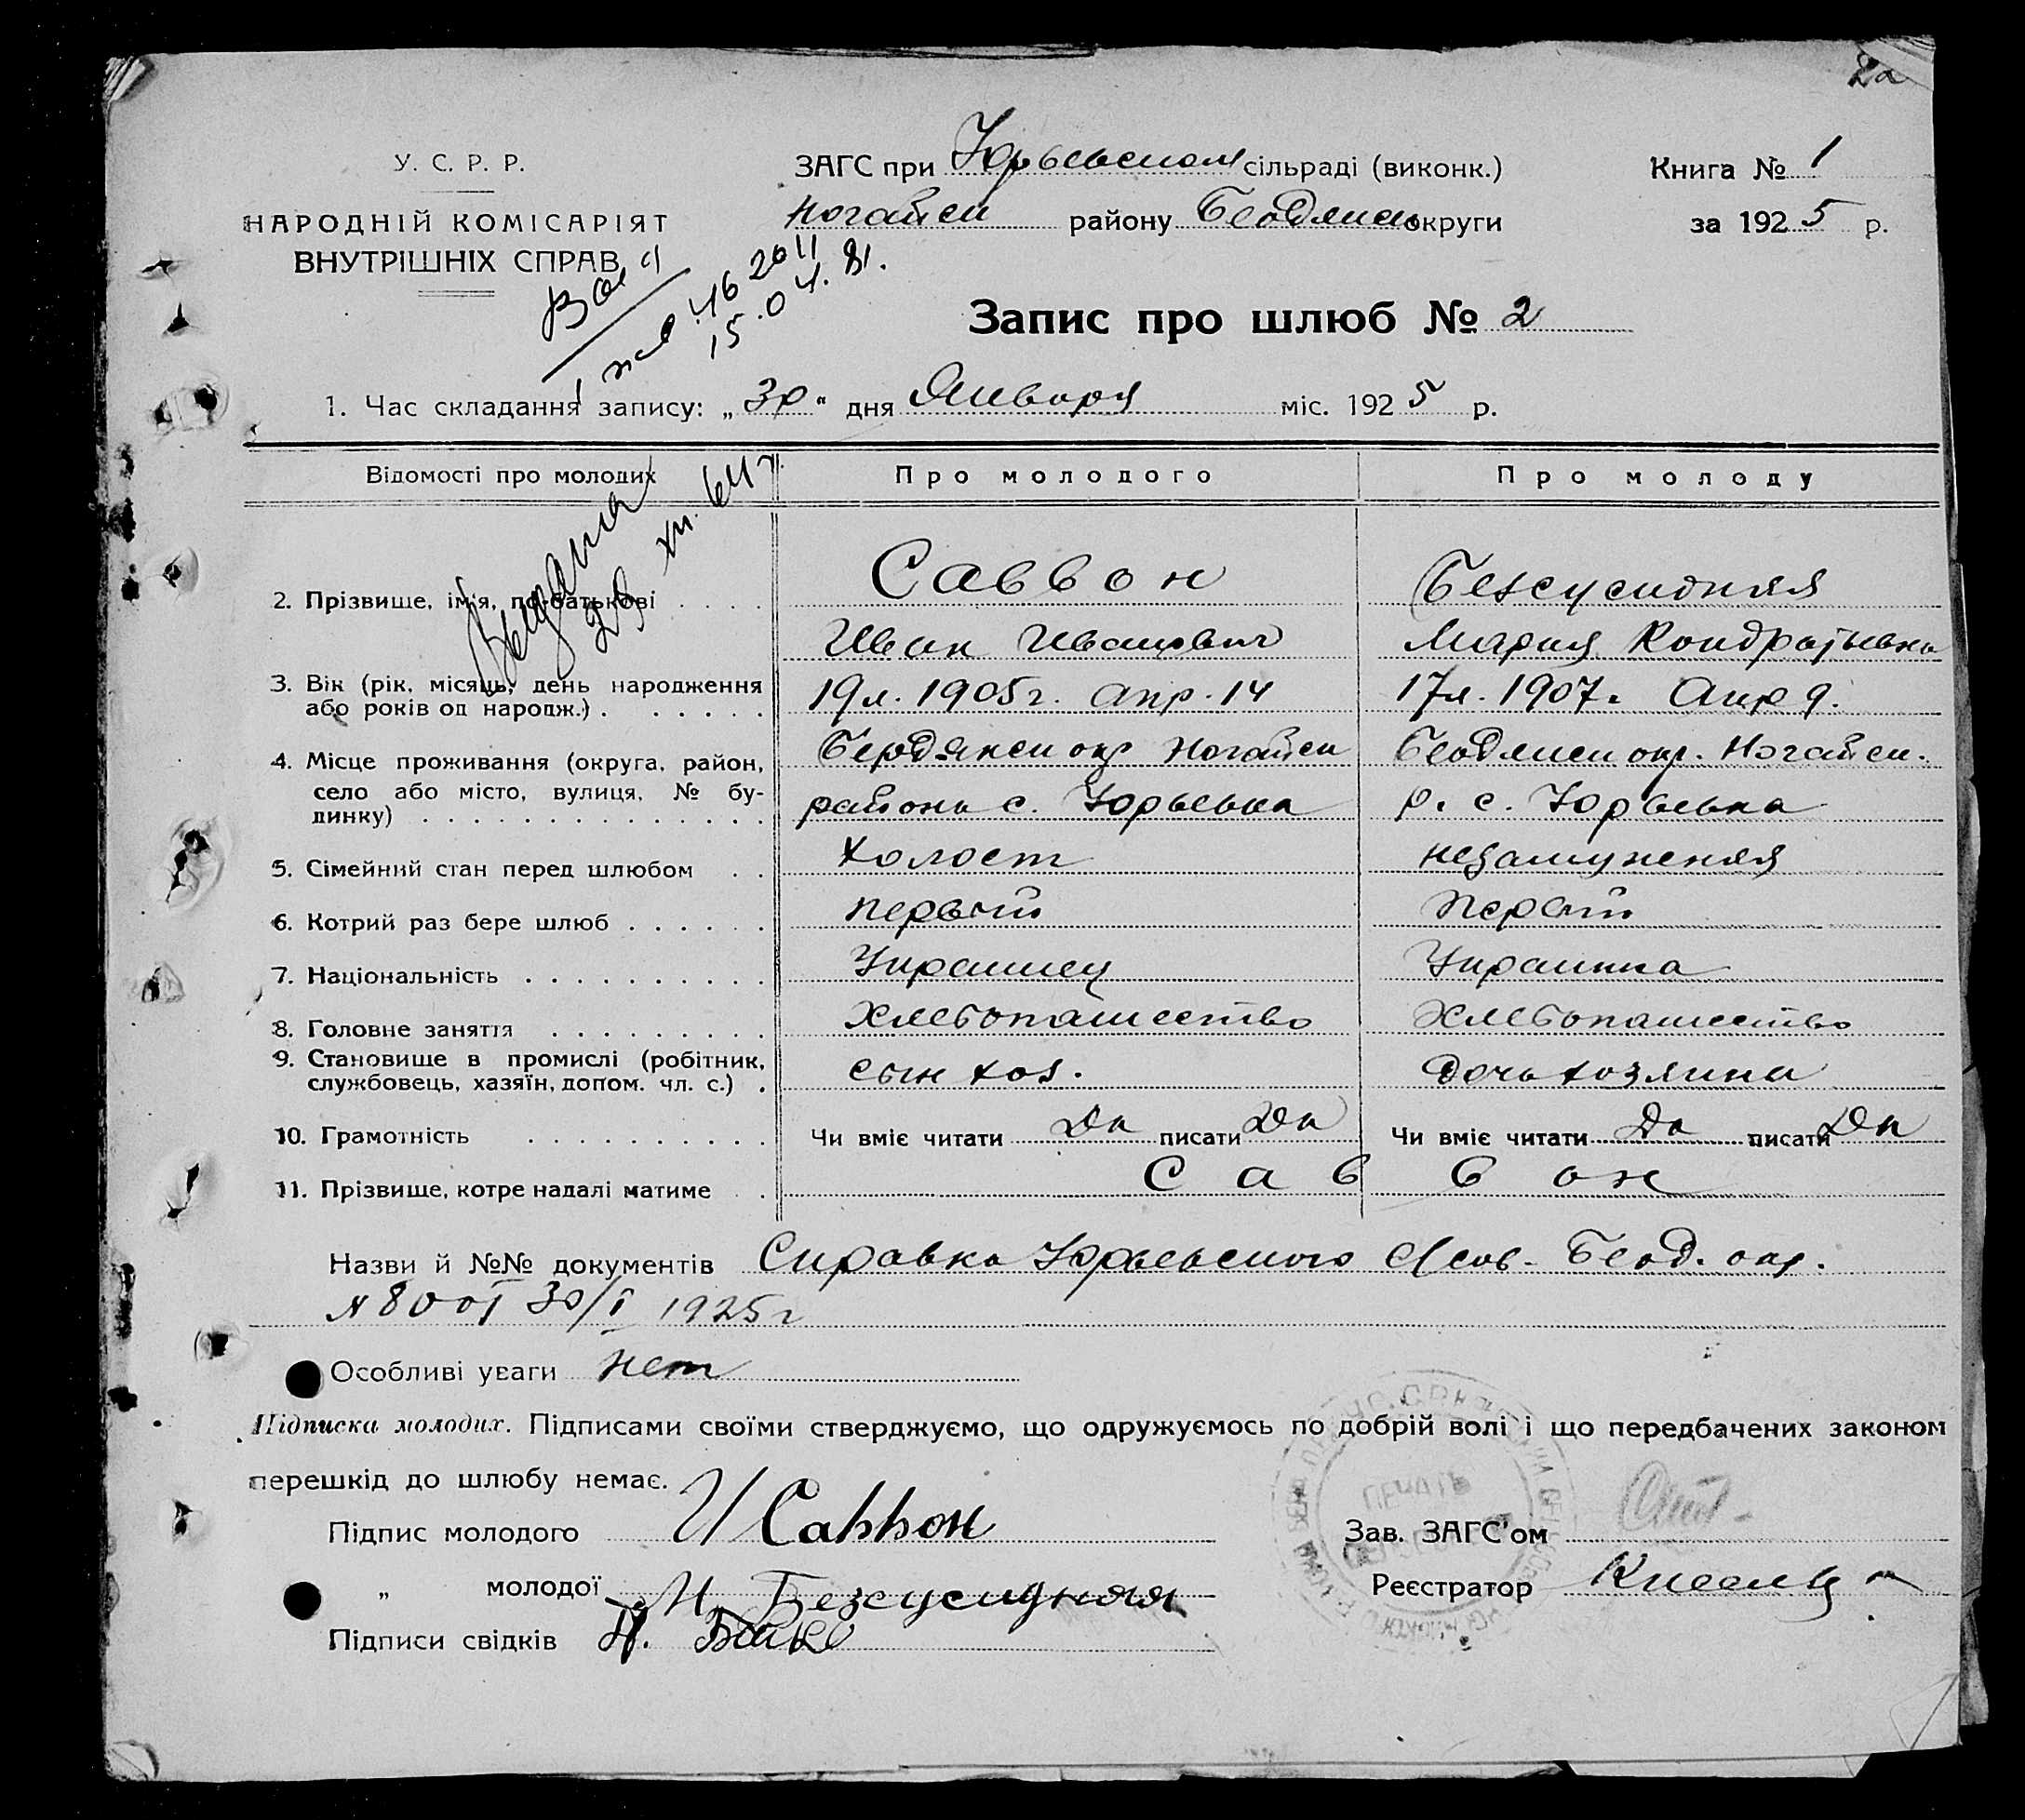 2а
У. С. Р. Р.
НАРОДНІЙ КОМІСАРІЯТ
ВНУТРІШНІХ СПРАВ
ЗАГС при Юрьевском сільраді (виконк.)
Ногайск району Бердянск округи
Книга № 1
за 1925 р.
15.04.81.
Запис про шлюб № 2
1. Час складання запису: „30“ дня Января міс. 1925 р.
Відомості про молодих
Про молодого
Про молоду
Выдана
28 XII. 64 г.
2. Прізвище, ім'я, по-батькові . . . .
Саввон
Безсусидняя
Иван Иванович
Мария Кондратьевна
3. Вік (рік, місяць, день народження
або років од народж.) . . . . . .
19 л. 1905 г. Апр. 14
17 л. 1907 г. Апр 9.
4. Місце проживання (округа, район,
село або місто, вулиця, № бу-
динку) . . . . . . . . . . . . . .
Бердянск окр Ногайск
Бердянск окр. Ногайск.
района с. Юрьевка
р. с. Юрьевка
5. Сімейний стан перед шлюбом . .
Холост
незамужняя
6. Котрий раз бере шлюб . . . . . .
первый
Первый
7. Національність . . . . . . . . . .
Украинец
Украинка
8. Головне заняття . . . . . . . . .
Хлебопашество
Хлебопашество
9. Становище в промислі (робітник,
службовець, хазяїн, допом. чл. с.) .
сын хоз.
дочь хозяина
10. Грамотність . . . . . . . . . .
Чи вміє читати Да писати Да
Чи вміє читати Да писати Да
11. Прізвище, котре надалі матиме . .
Саввон
Назви й №№ документів Справка Юрьевского с/сов. Берд. окр.
№ 80 от 30/I 1925 г
Особливі уваги нет
Підписка молодих. Підписами своїми стверджуємо, що одружуємось по добрій волі і що передбачених законом
перешкід до шлюбу немає.
Підпис молодого И Саввон
Зав. ЗАГС'ом
„ молодої М. Безсусидняя
Реєстратор
Підписи свідків
ПЕЧАТЬ